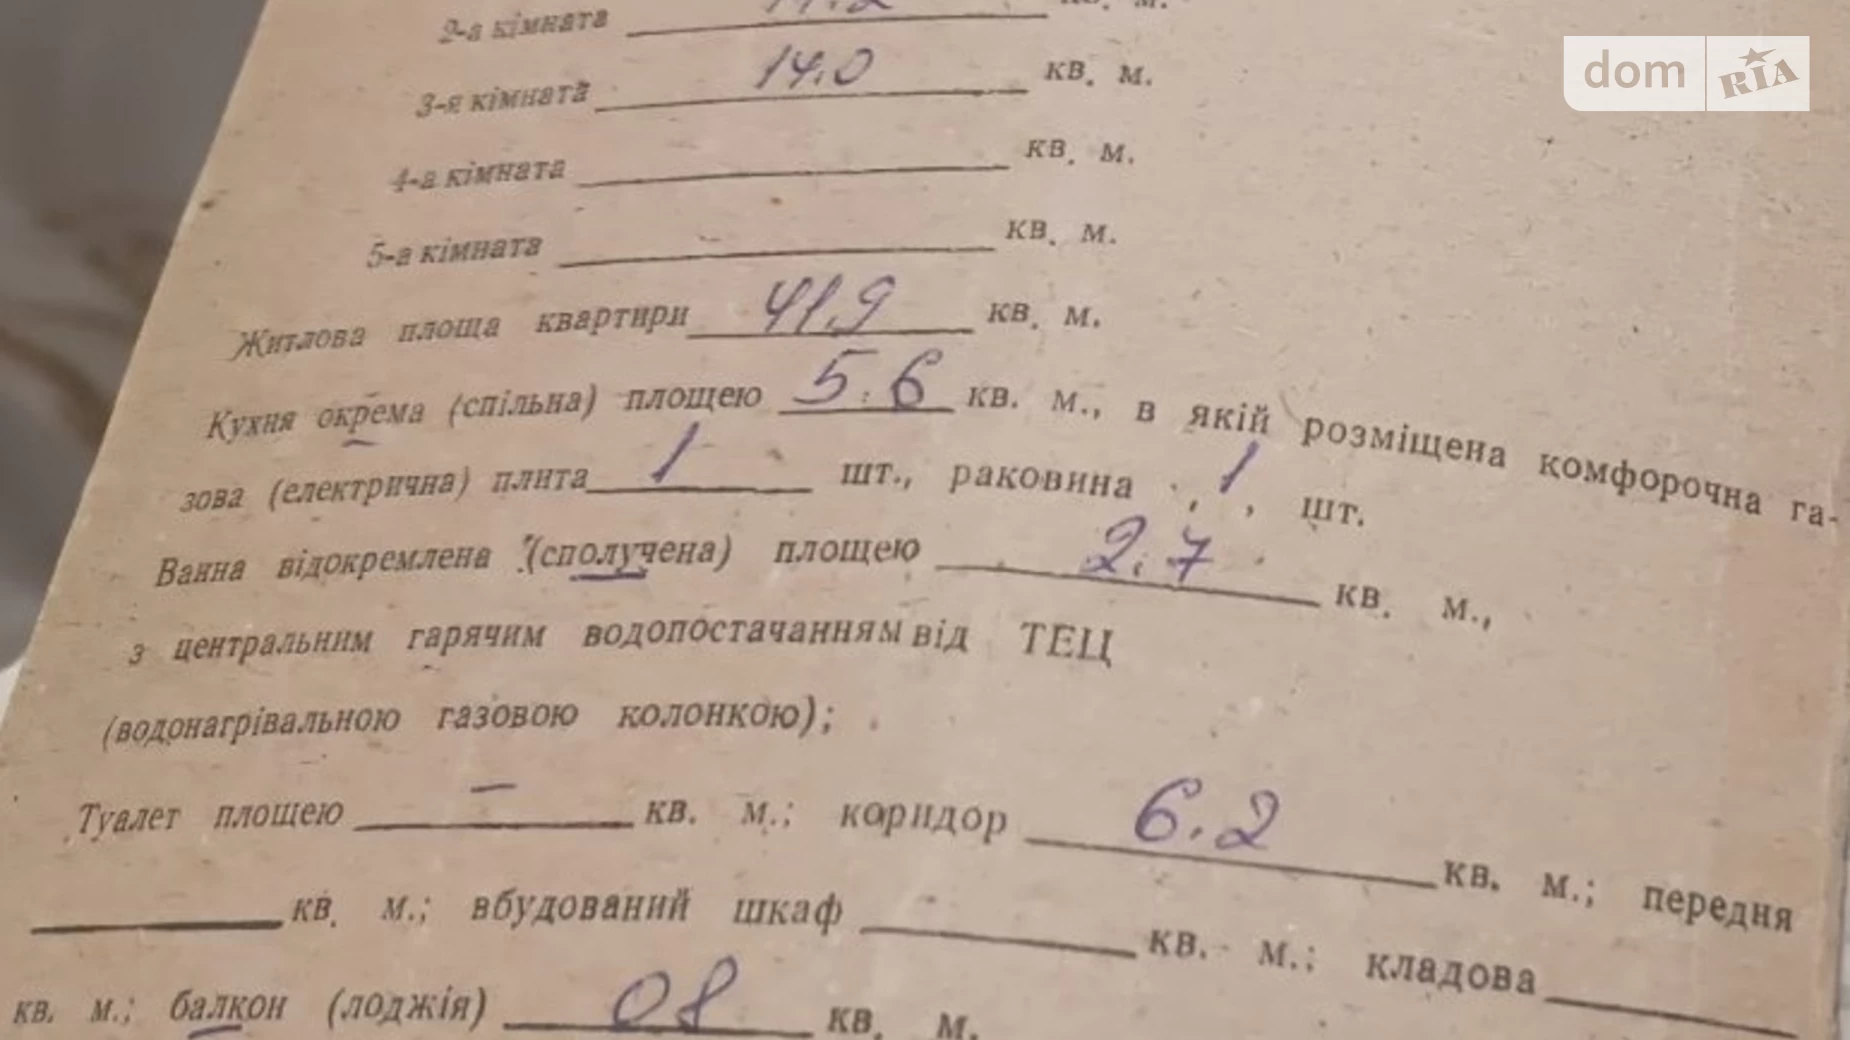 2-а кімната кв. м.
3-я кімната 14.0 кв. м.
4-а кімната кв. м.
5-а кімната кв. м.
Житлова площа квартири 41,9 кв. м.
Кухня окрема (спільна) площею 5.6 кв. м., в якій розміщена комфорочна га-
зова (електрична) плита 1 шт., раковина 1, шт.
Ванна відокремлена (сполучена) площею 2.7 кв. м.,
з центральним гарячим водопостачанням від ТЕЦ
(водонагрівальною газовою колонкою);
Туалет площею — кв. м.; коридор 6.2 кв. м.; передня
кв. м.; вбудований шкаф кв. м.; кладова
кв. м.; балкон (лоджія) 08 кв. м.
dom RIA